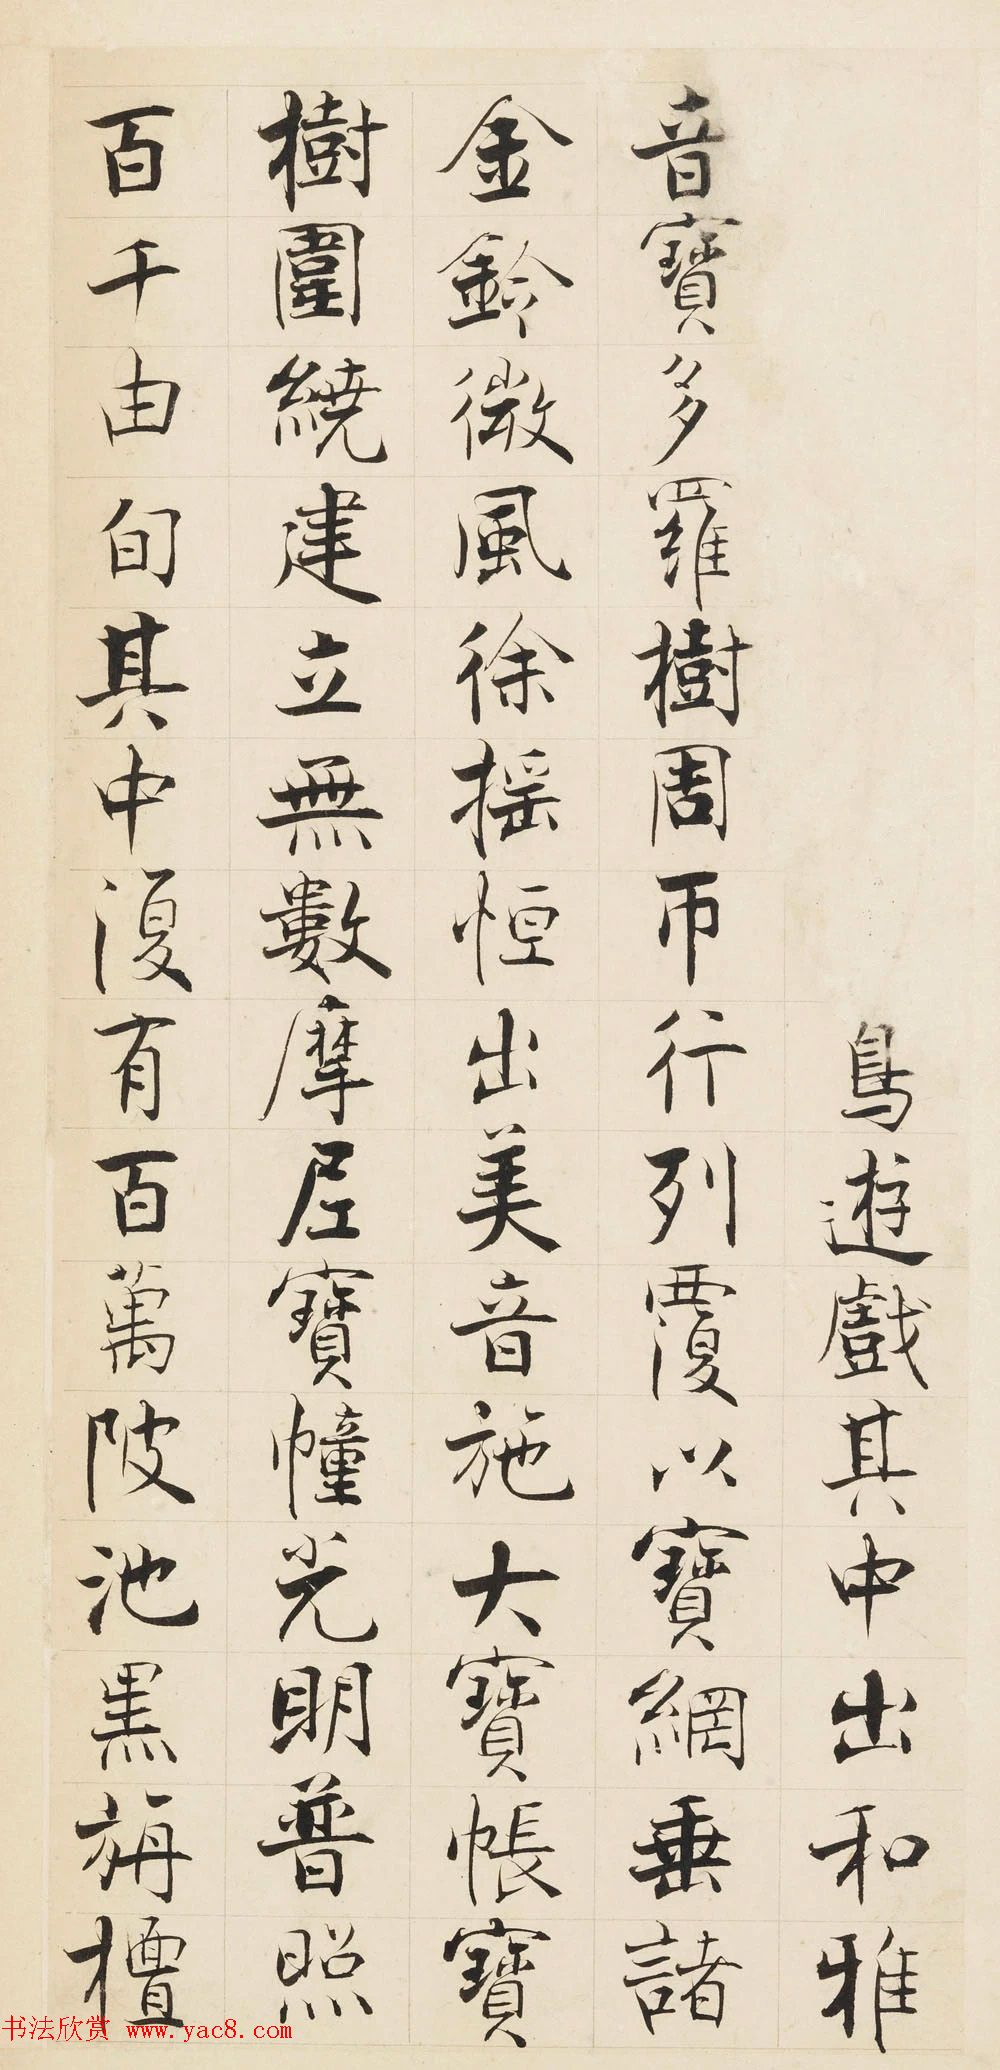 鳥遊戲其中出和雅
音寶多羅樹周帀行列覆以寶網垂諸
金鈴微風徐摇恒出美音施大寶帳寶
樹圍繞建立無數摩尼寶幢光明普照
百千由旬其中復有百萬陂池黑旃檀
书法欣赏 www.yac8.com